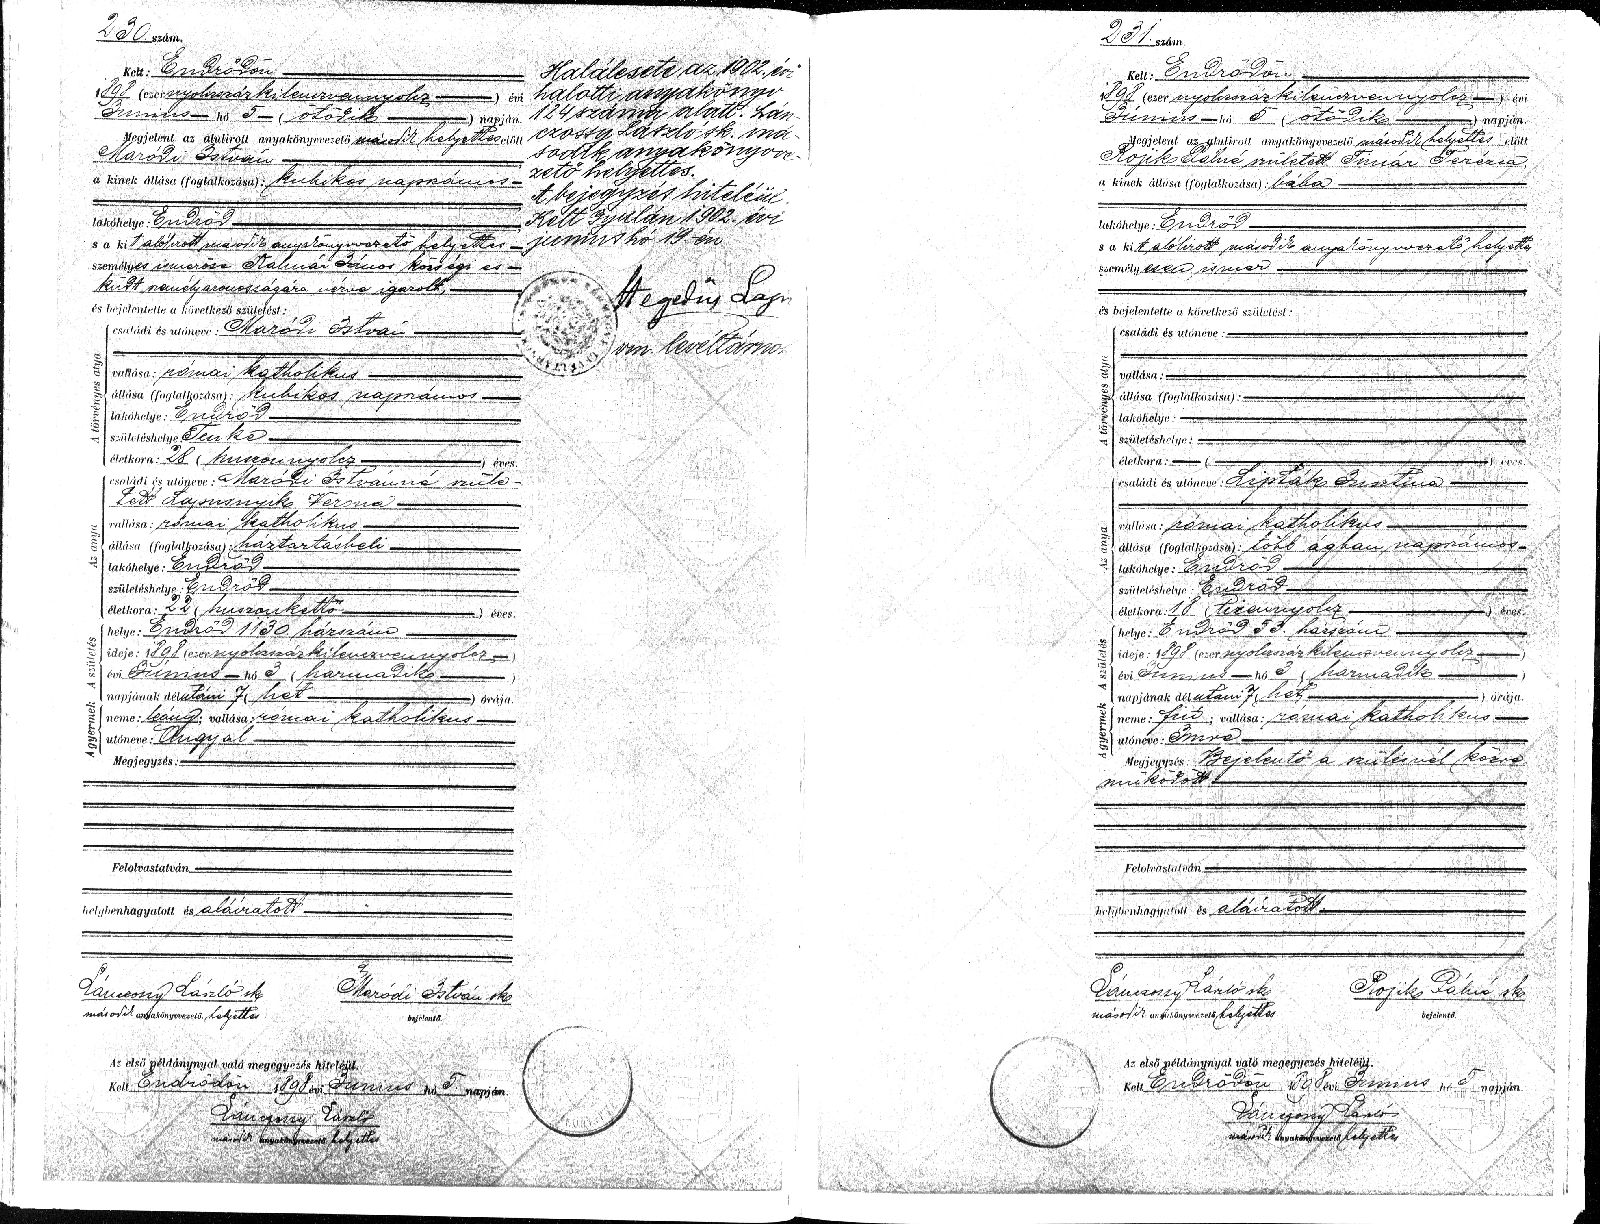 230. szám.
Kelt: Endrődön
1898 (ezer nyolcszázkilenczvennyolcz) évi
Június hó 5 (ötödik) napján.
Megjelent az alulirott anyakönyvvezető második helyettes előtt
Maródi István
a kinek állása (foglalkozása): kubikos napszámos
lakóhelye: Endrőd
s a kit alólirott, második anyakönyvvezető helyettes
személyes ismerőse Kalmár János községi es-
küdt személyazonosságára nézve igazolt,
és bejelentette a következő születést:
A törvényes atyja
családi és utóneve: Maródi István
vallása: római katholikus
állása (foglalkozása): kubikos napszámos
lakóhelye: Endrőd
születéshelye: Tenke
életkora: 28 (huszonnyolcz) éves.
Az anya
családi és utóneve: Maródi Istvánné szüle-
tett Lapusnyik Verona
vallása: római katholikus
állása (foglalkozása): háztartásbeli
lakóhelye: Endrőd
születéshelye: Endrőd
életkora: 22 (huszonkettő) éves.
A születés
helye: Endrőd 1130 házszám
ideje: 1898 (ezer nyolcszázkilenczvennyolcz)
évi Június hó 3 (harmadik)
napjának délutáni 7 (hét) órája.
A gyermek
neme: leány; vallása: római katholikus
utóneve: Angyal
Megjegyzés:
Felolvastatván
helybenhagyatott és aláiratott
Lánczossy László sk
második anyakönyvvezető helyettes
Maródi István sk
bejelentő.
Az első példánynyal való megegyezés hiteléül.
Kelt Endrődön 1898 évi Június hó 5 napján.
Lánczossy László
második anyakönyvvezető helyettes
Halálesete az 1902. évi
halotti anyakönyv
124 száma alatt. Lán-
czossy László sk. má-
sodik anyakönyvve-
zető helyettes.
A bejegyzés hiteléül.
Kelt Gyulán 1902. évi
junius hó 19-én
Hegedüs Lajos
vm. levéltárnok
231. szám
Kelt: Endrődön
1898 (ezer nyolcszázkilenczvennyolcz) évi
Június hó 5 (ötödik) napján.
Megjelent az alulirott anyakönyvvezető második helyettes előtt
Rojik Pálné született Timár Terézia
a kinek állása (foglalkozása): bába
lakóhelye: Endrőd
s a kit alólirott, második anyakönyvvezető helyettes
személyesen ismer
és bejelentette a következő születést:
A törvényes atyja
családi és utóneve:
vallása:
állása (foglalkozása):
lakóhelye:
születéshelye:
életkora: ( ) éves.
Az anya
családi és utóneve: Lipták Jusztina
vallása: római katholikus
állása (foglalkozása): több ágban napszámos
lakóhelye: Endrőd
születéshelye: Endrőd
életkora: 18 (tizennyolcz) éves.
A születés
helye: Endrőd 53. házszám
ideje: 1898 (ezer nyolcszázkilenczvennyolcz)
évi Június hó 3 (harmadik)
napjának délutáni 7 (hét) órája.
A gyermek
neme: fiú; vallása: római katholikus
utóneve: Imre
Megjegyzés: Bejelentő a szülésnél közre
működött
Felolvastatván
helybenhagyatott és aláiratott
Lánczossy László sk
második anyakönyvvezető helyettes
Rojik Pálné sk
bejelentő.
Az első példánynyal való megegyezés hiteléül.
Kelt Endrődön 1898 évi Június hó 5 napján
Lánczossy László
második anyakönyvvezető helyettes